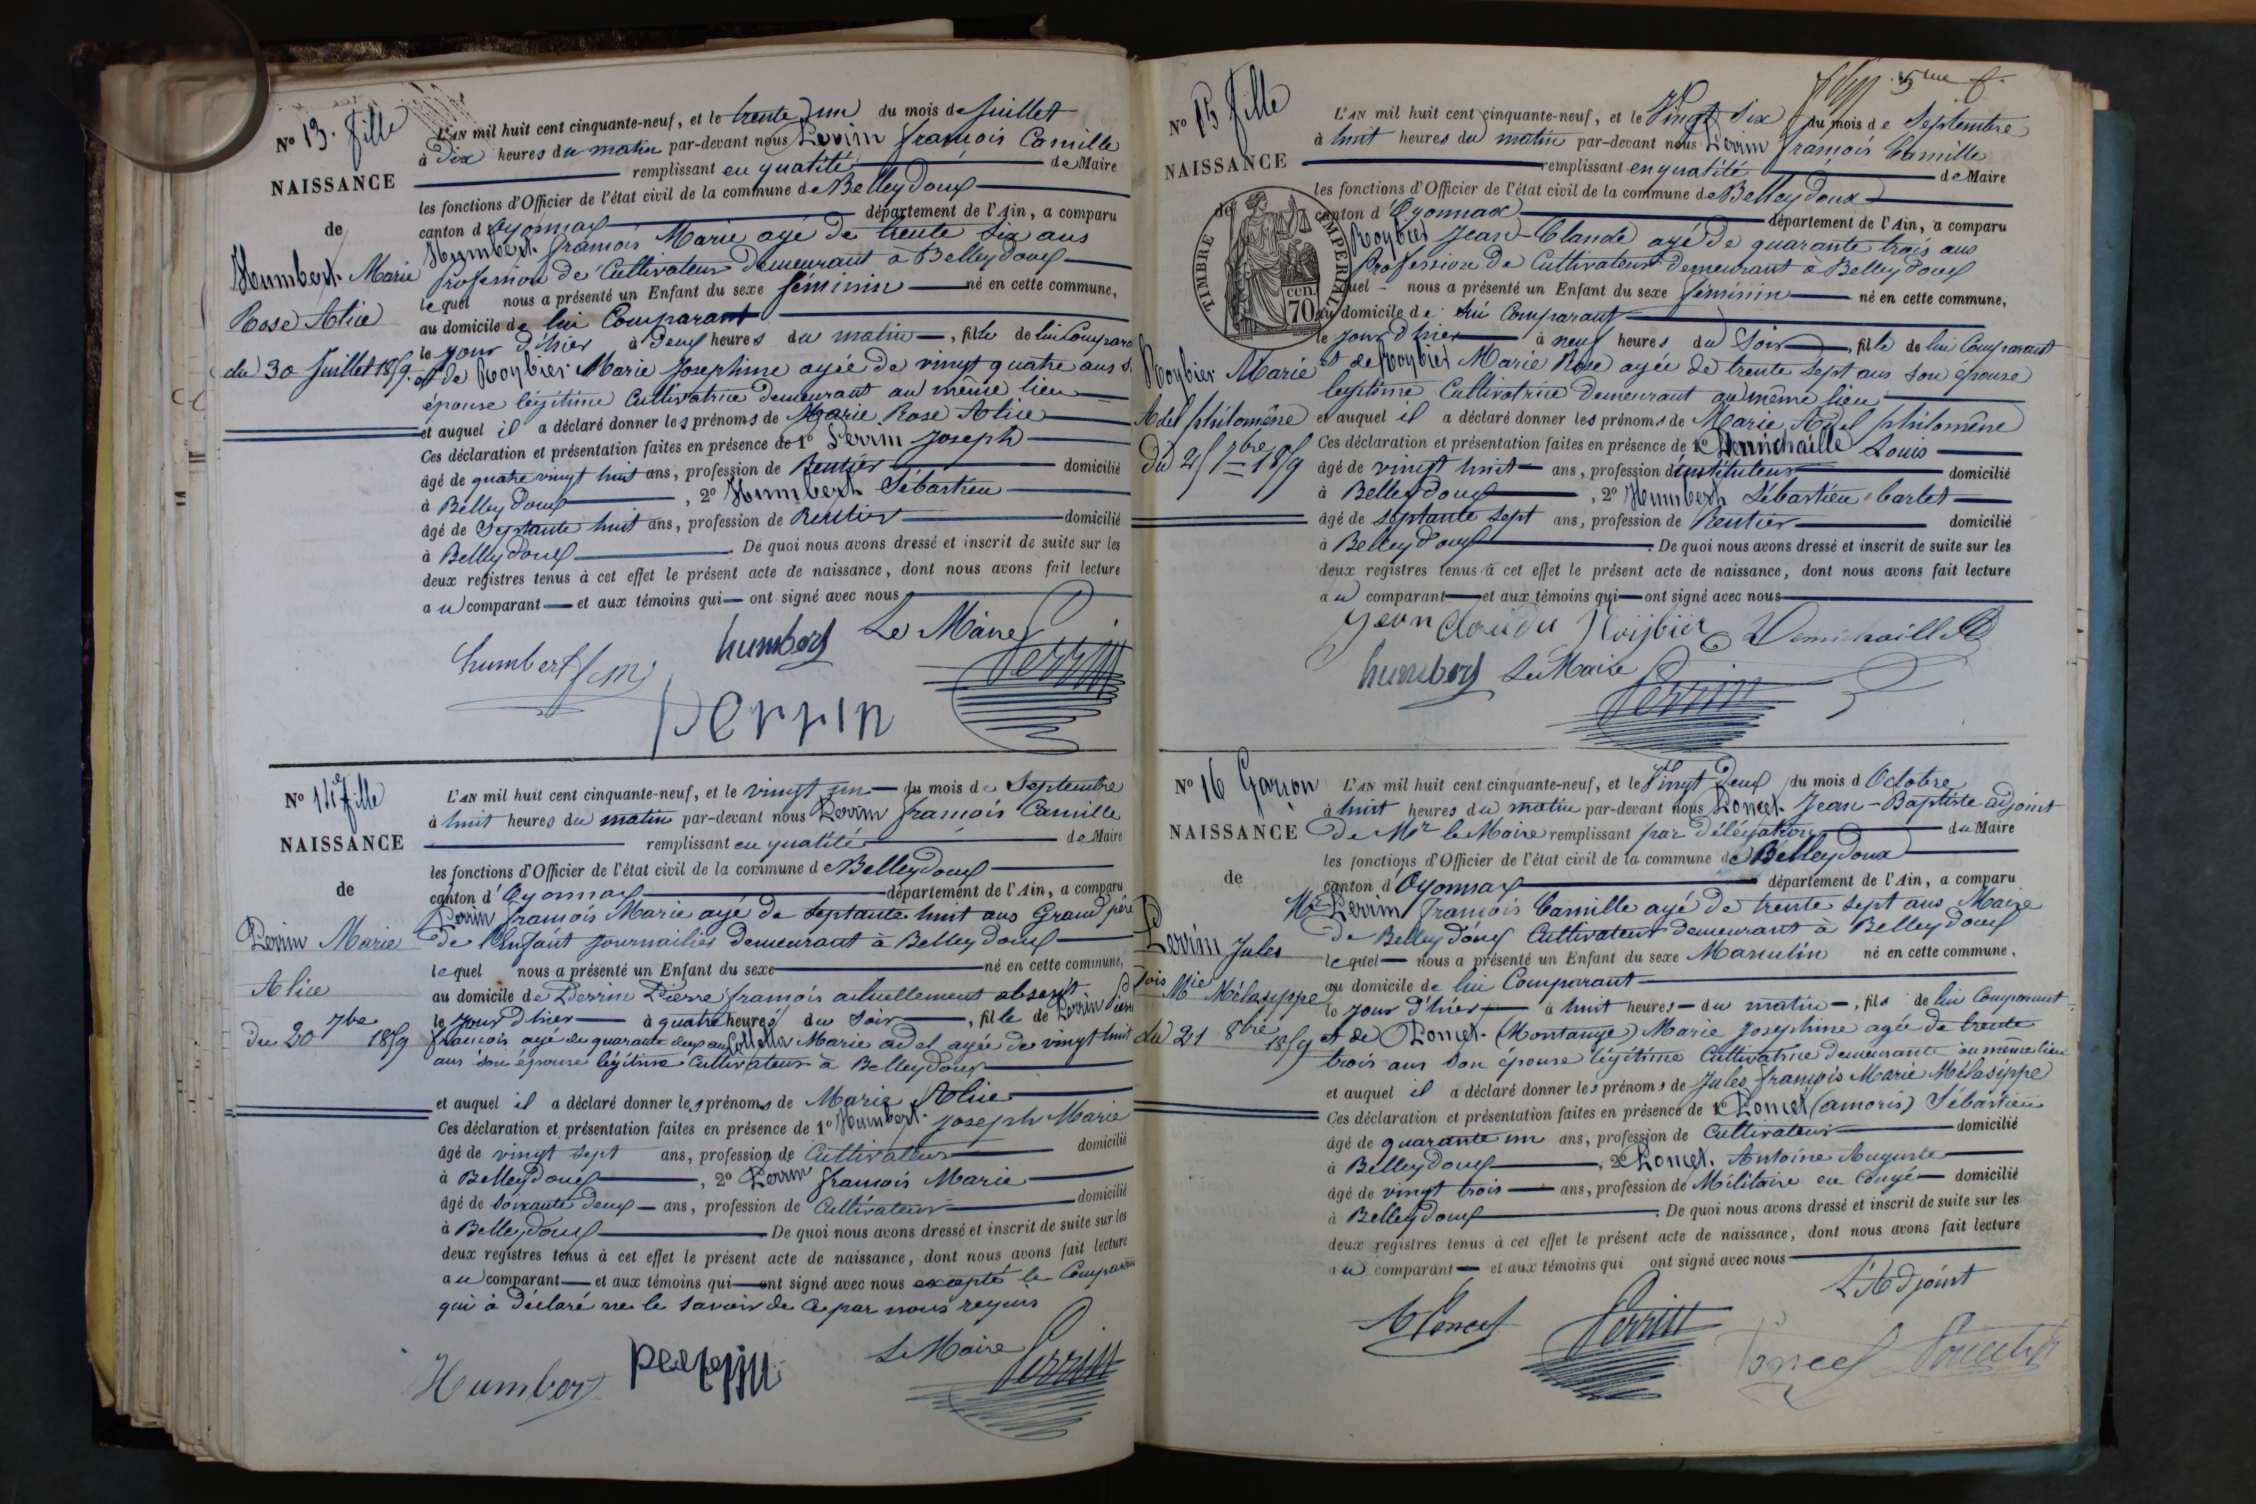 N° 13. fille
NAISSANCE
de
Humbert Marie
Rose Alice
du 30 Juillet 1859.
L'AN mil huit cent cinquante-neuf, et le trente un du mois de Juillet
à Dix heures du matin par-devant nous Perrin françois Camille
remplissant en qualité de Maire
les fonctions d'Officier de l'état civil de la commune de Belleydoux
canton d'Oyonnax département de l'Ain, a comparu
Humbert françois Marie agé de trente six ans
profession de Cultivateur demeurant à Belleydoux
lequel nous a présenté un Enfant du sexe féminin né en cette commune,
au domicile de lui Comparant
le jour d'hier à deux heures du matin, fille de lui Comparant
et de Roybier Marie Josephine agée de vingt quatre ans s.
épouse légitime Cultivatrice demeurant au même lieu
et auquel il a déclaré donner les prénoms de Marie Rose Alice
Ces déclaration et présentation faites en présence de 1° Perrin Joseph
âgé de quatre vingt huit ans, profession de Rentier domicilié
à Belleydoux, 2° Humbert Sébastien
âgé de Septante huit ans, profession de Rentier domicilié
à Belleydoux. De quoi nous avons dressé et inscrit de suite sur les
deux registres tenus à cet effet le présent acte de naissance, dont nous avons fait lecture
au comparant et aux témoins qui ont signé avec nous
humbert Le Maire
humbert f m Perrin
perrin
N° 14 fille
NAISSANCE
de
Perrin Marie
Alice
du 20 7bre 1859
L'AN mil huit cent cinquante-neuf, et le vingt un du mois de Septembre
à huit heures du matin par-devant nous Perrin françois Camille
remplissant en qualité de Maire
les fonctions d'Officier de l'état civil de la commune de Belleydoux
canton d'Oyonnax département de l'Ain, a comparu
Perrin françois Marie agé de septante huit ans Grand père
de l'Enfant journailier demeurant à Belleydoux
lequel nous a présenté un Enfant du sexe né en cette commune,
au domicile de Perrin Pierre françois actuellement absent
le jour d'hier à quatre heures du soir, fille de Perrin Pierre
francois agé de quarante deux ans Colletta Marie adel agée de vingt huit
ans son épouse légitime Cultivateurs à Belleydoux
et auquel il a déclaré donner les prénoms de Marie Alice
Ces déclaration et présentation faites en présence de 1° Humbert Joseph Marie
âgé de vingt sept ans, profession de Cultivateur domicilié
à Belleydoux, 2° Perrin françois Marie
âgé de soixante deux ans, profession de Cultivateur domicilié
à Belleydoux. De quoi nous avons dressé et inscrit de suite sur les
deux registres tenus à cet effet le présent acte de naissance, dont nous avons fait lecture
au comparant et aux témoins qui ont signé avec nous excepté le Comparant
qui à déclaré ne le savoir de ce par nous requis
Le Maire
Humbert Perrin
5me f.
N° 15 fille
NAISSANCE
de
TIMBRE IMPERIAL
70 cen.
Roybier Marie
Adel philomène
du 25 7bre 1859
L'AN mil huit cent cinquante-neuf, et le Vingt Six du mois de Septembre
à huit heures du matin par-devant nous Perrin françois Camille
remplissant en qualité de Maire
les fonctions d'Officier de l'état civil de la commune de Belleydoux
canton d'Oyonnax département de l'Ain, a comparu
Roybier Jean-Claude agé de quarante trois ans
Profession de Cultivateur demeurant à Belleydoux
quel nous a présenté un Enfant du sexe féminin né en cette commune,
au domicile de lui Comparant
le jour d'hier à neuf heures du Soir, fille de lui Comparant
et de Roybier Marie Rose agée de trente sept ans son épouse
legitime Cultivatrice demeurant au même lieu
et auquel il a déclaré donner les prénoms de Marie Adel philomène
Ces déclaration et présentation faites en présence de 1° Demichaille Louis
âgé de vingt huit ans, profession d'instituteur domicilié
à Belleydoux, 2° Humbert Sébastien Carlet
âgé de septante sept ans, profession de Rentier domicilié
à Belleydoux. De quoi nous avons dressé et inscrit de suite sur les
deux registres tenus à cet effet le présent acte de naissance, dont nous avons fait lecture
au comparant et aux témoins qui ont signé avec nous
Jean Claude Roijbier Demichaille
humbert Le Maire
Perrin
N° 16 Garçon
NAISSANCE
de
Perrin Jules
Mie Mélasippe
du 21 8bre 1859
L'AN mil huit cent cinquante-neuf, et le Vingt Deux du mois d'Octobre
à huit heures du matin par-devant nous Poncet Jean-Baptiste adjoint
de Mr le Maire remplissant par délégation du Maire
les fonctions d'Officier de l'état civil de la commune de Belleydoux
canton d'Oyonnax département de l'Ain, a comparu
Mr Perrin francois Camille agé de trente sept ans Maire
de Belleydoux Cultivateur demeurant à Belleydoux
lequel nous a présenté un Enfant du sexe Masculin né en cette commune,
au domicile de lui Comparant
le jour d'hier à huit heures du matin, fils de lui Comparant
et de Poncet (Montange) Marie Josephine agée de trente
trois ans son épouse légitime Cultivatrice demeurante au même lieu
et auquel il a déclaré donner les prénoms de Jules françois Marie Mélasippe
Ces déclaration et présentation faites en présence de 1° Poncet (amoris) Sébastien
âgé de quarante un ans, profession de Cultivateur domicilié
à Belleydoux, 2° Poncet Antoine Auguste
âgé de vingt trois ans, profession de Militaire en Congé domicilié
à Belleydoux. De quoi nous avons dressé et inscrit de suite sur les
deux registres tenus à cet effet le présent acte de naissance, dont nous avons fait lecture
au comparant et aux témoins qui ont signé avec nous
L'Adjoint
Poncet Perrin Poncet